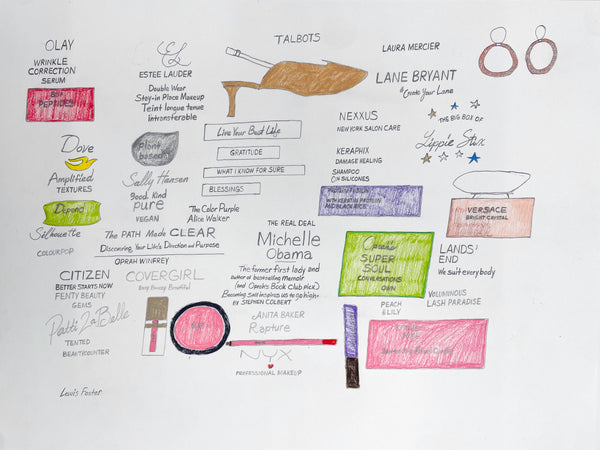 OLAY
WRINKLE
CORRECTION
SERUM
B3+
PEPTIDES
EL
ESTEE LAUDER
Double Wear
Stay-in Place Makeup
Teint longue tenue
intransferable
TALBOTS
LAURA MERCIER
LANE BRYANT
#Create Your Lane
Dove
Amplified
TEXTURES
Depend
Silhouette
COLOURPOP
Plant
based
Sally Hansen
good. Kind
pure
VEGAN
The Color Purple
Alice Walker
Live Your Best Life
GRATITUDE
WHAT I KNOW FOR SURE
BLESSINGS
NEXXUS
NEW YORK SALON CARE
KERAPHIX
DAMAGE HEALING
SHAMPOO
SILICONES
PROTEIN FUSION
WITH KERATIN PROTEIN
AND BLACK RICE
THE BIG BOX OF
Lippie Stix
VERSACE
BRIGHT CRYSTAL
The PATH Made CLEAR
Discovering Your Life's Direction and Purpose
OPRAH WINFREY
THE REAL DEAL
Michelle
Obama
The former first lady and
author of bestselling memoir
(and Oprah's Book Club pick)
Becoming sure inspires us to go high.
BY STEPHEN COLBERT
Oprah's
SUPER
SOUL
CONVERSATIONS
OWN
LANDS'
END
We suit every body
CITIZEN
BETTER STARTS NOW
FENTY BEAUTY
GEMS
Patti LaBelle
TENTED
BEAUTYCOUNTER
COVERGIRL
Easy Breezy Beautiful
ANITA BAKER
Rapture
NYX
PROFESSIONAL MAKEUP
PEACH
& LILY
VOLUMINOUS
LASH PARADISE
Lewis Foster